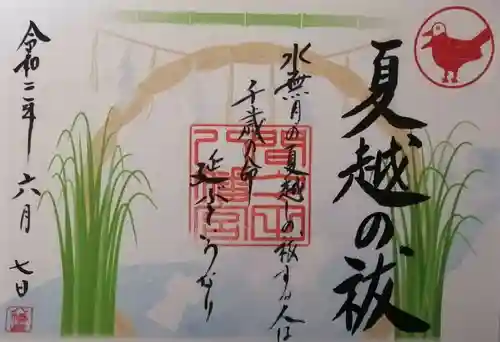 夏越の祓
水無月の夏越しの祓する人は
千歳の命
延ぶといふなり
令和二年 六月 七日